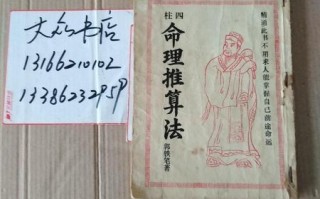 大众书店
13166210102
13386232959
精通此書不用求人能掌握自己前途命運
四柱
命理推算法
著